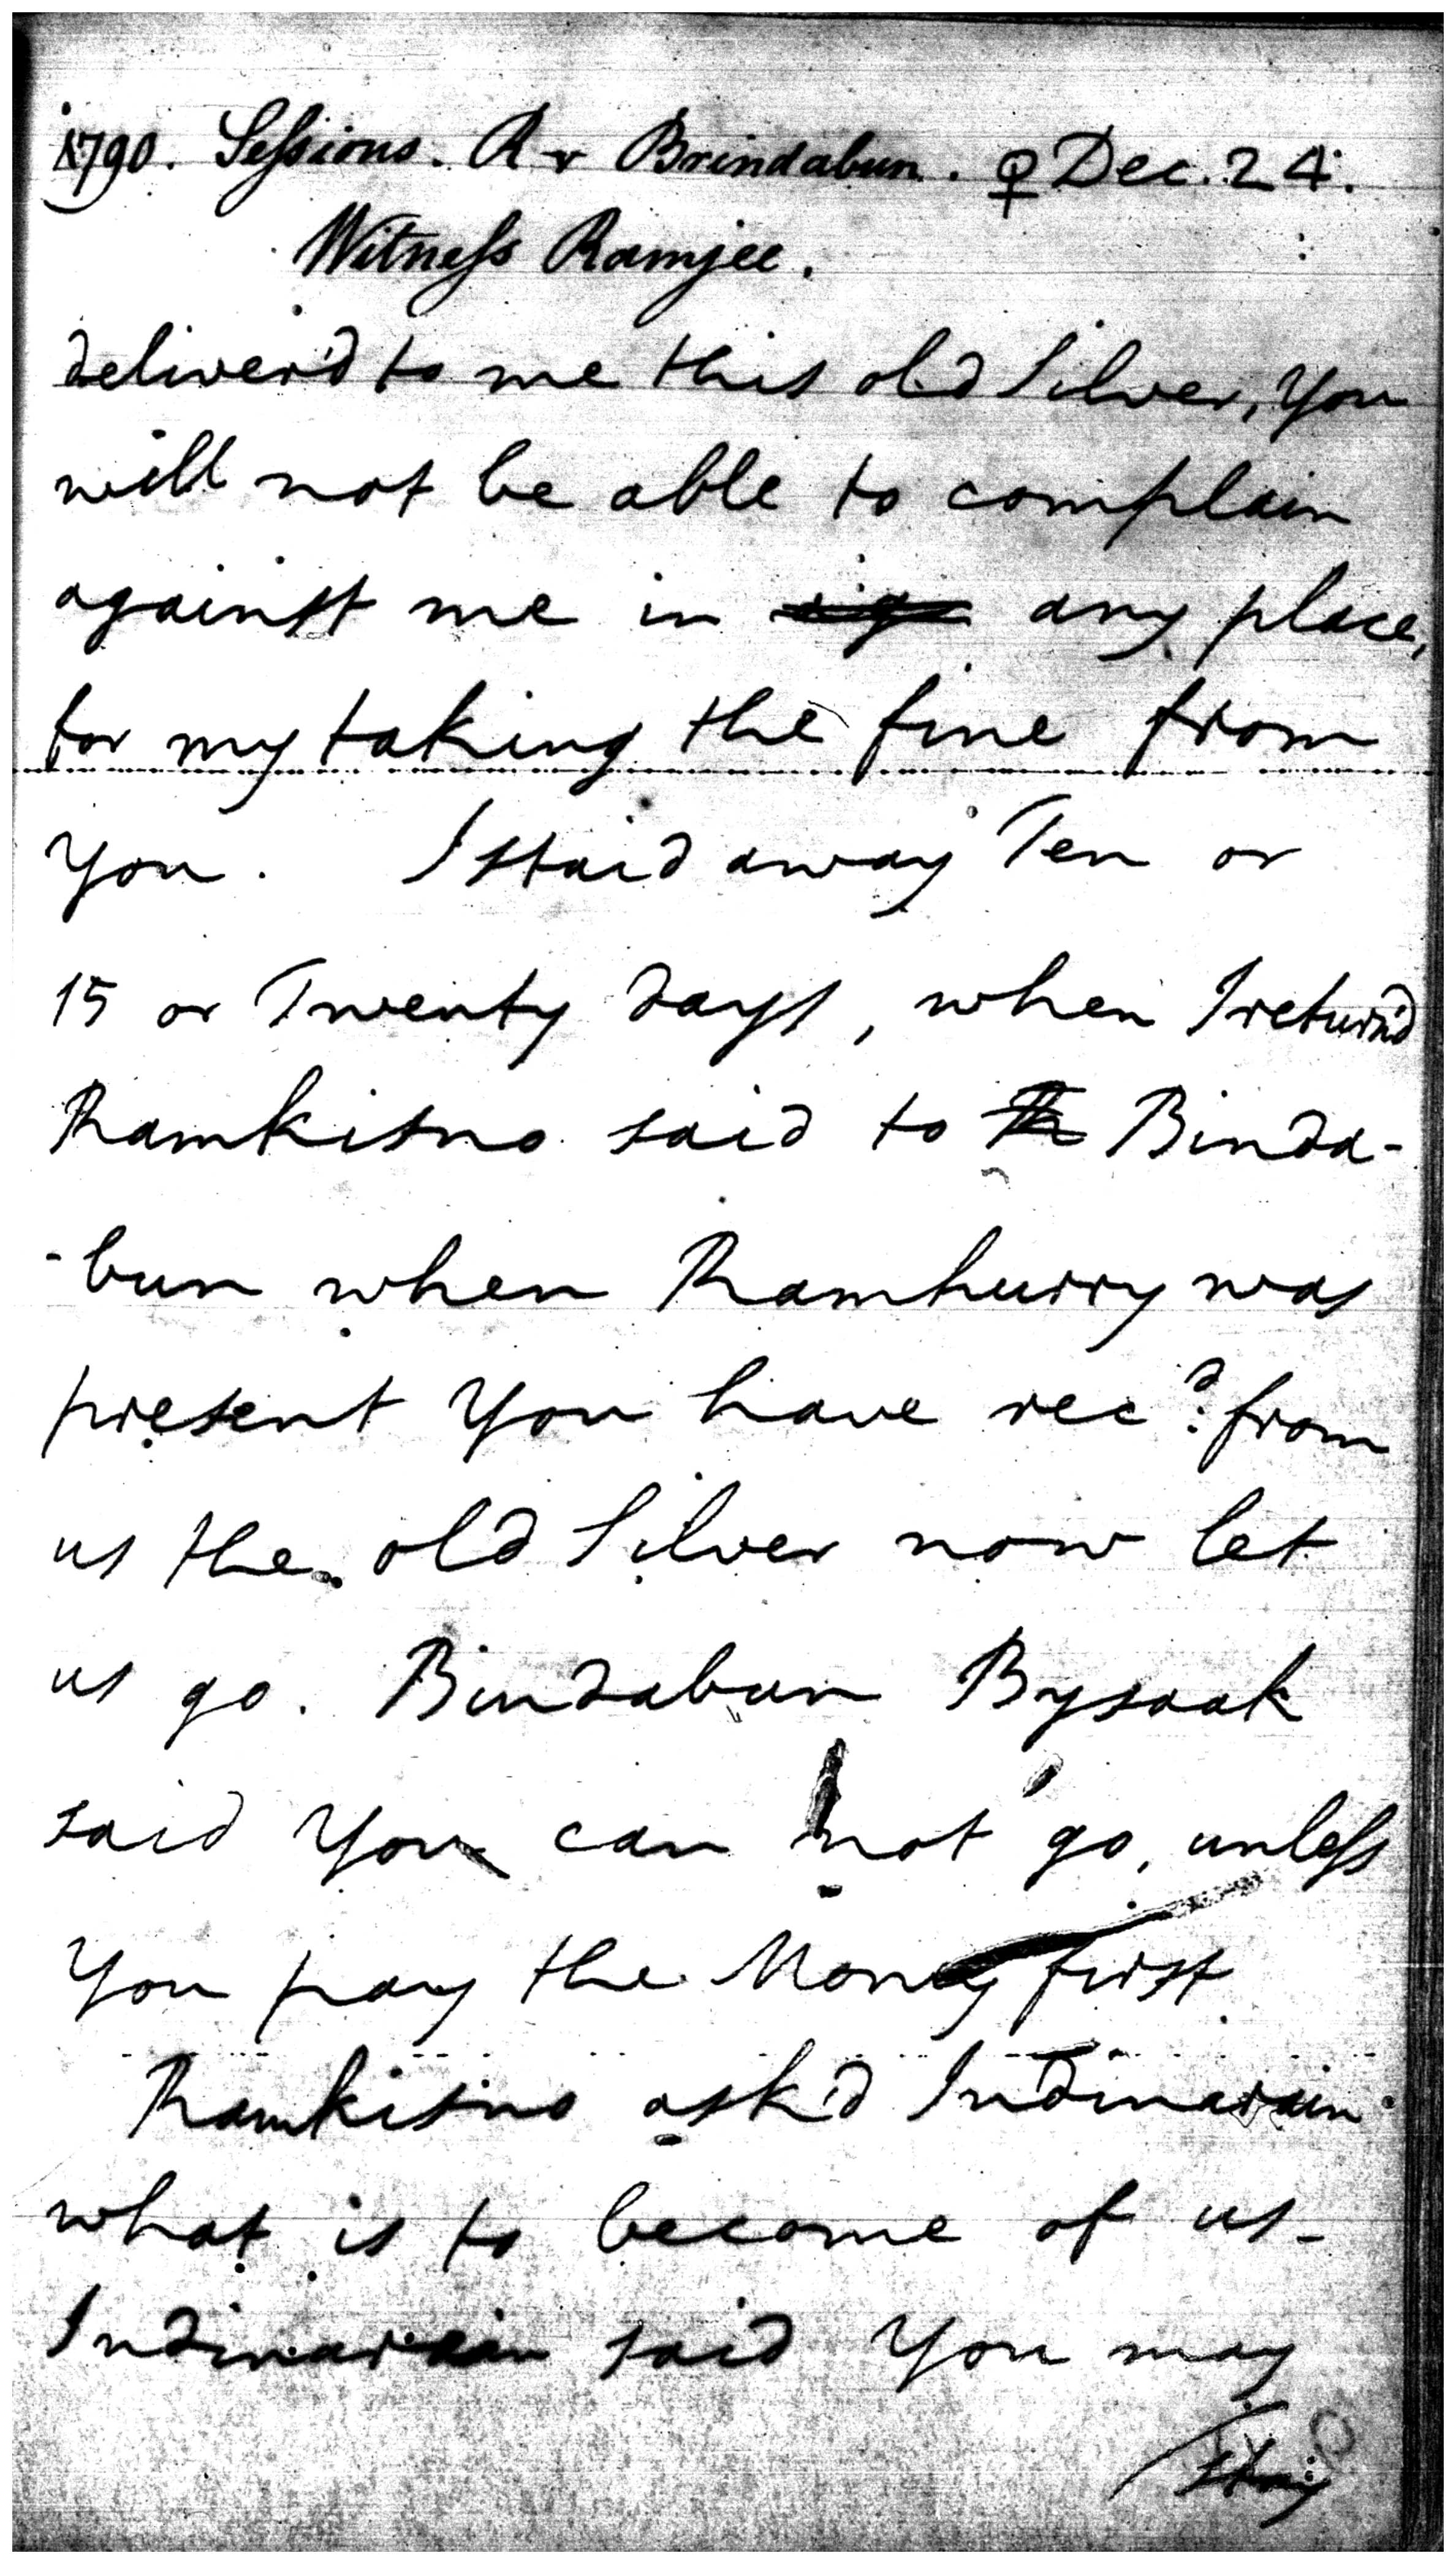 1790. Sessions. R v Brindabun. ♀ Dec. 24.
Witness Ramjee.
deliver'd to me this old Silver, you
will not be able to complain
against me in any place,
for my taking the fine from
you. I staid away Ten or
15 or Twenty days, when I return'd
Ramkisno said to Th Binda-
-bun when Ramhurry was
present you have rec.d from
us the old Silver now let
us go. Bindabun Bysaak
said you can not go, unless
you pay the Money first
Ramkisno ask'd Indinarain
what is to become of us-
Indinarain said you may
stay